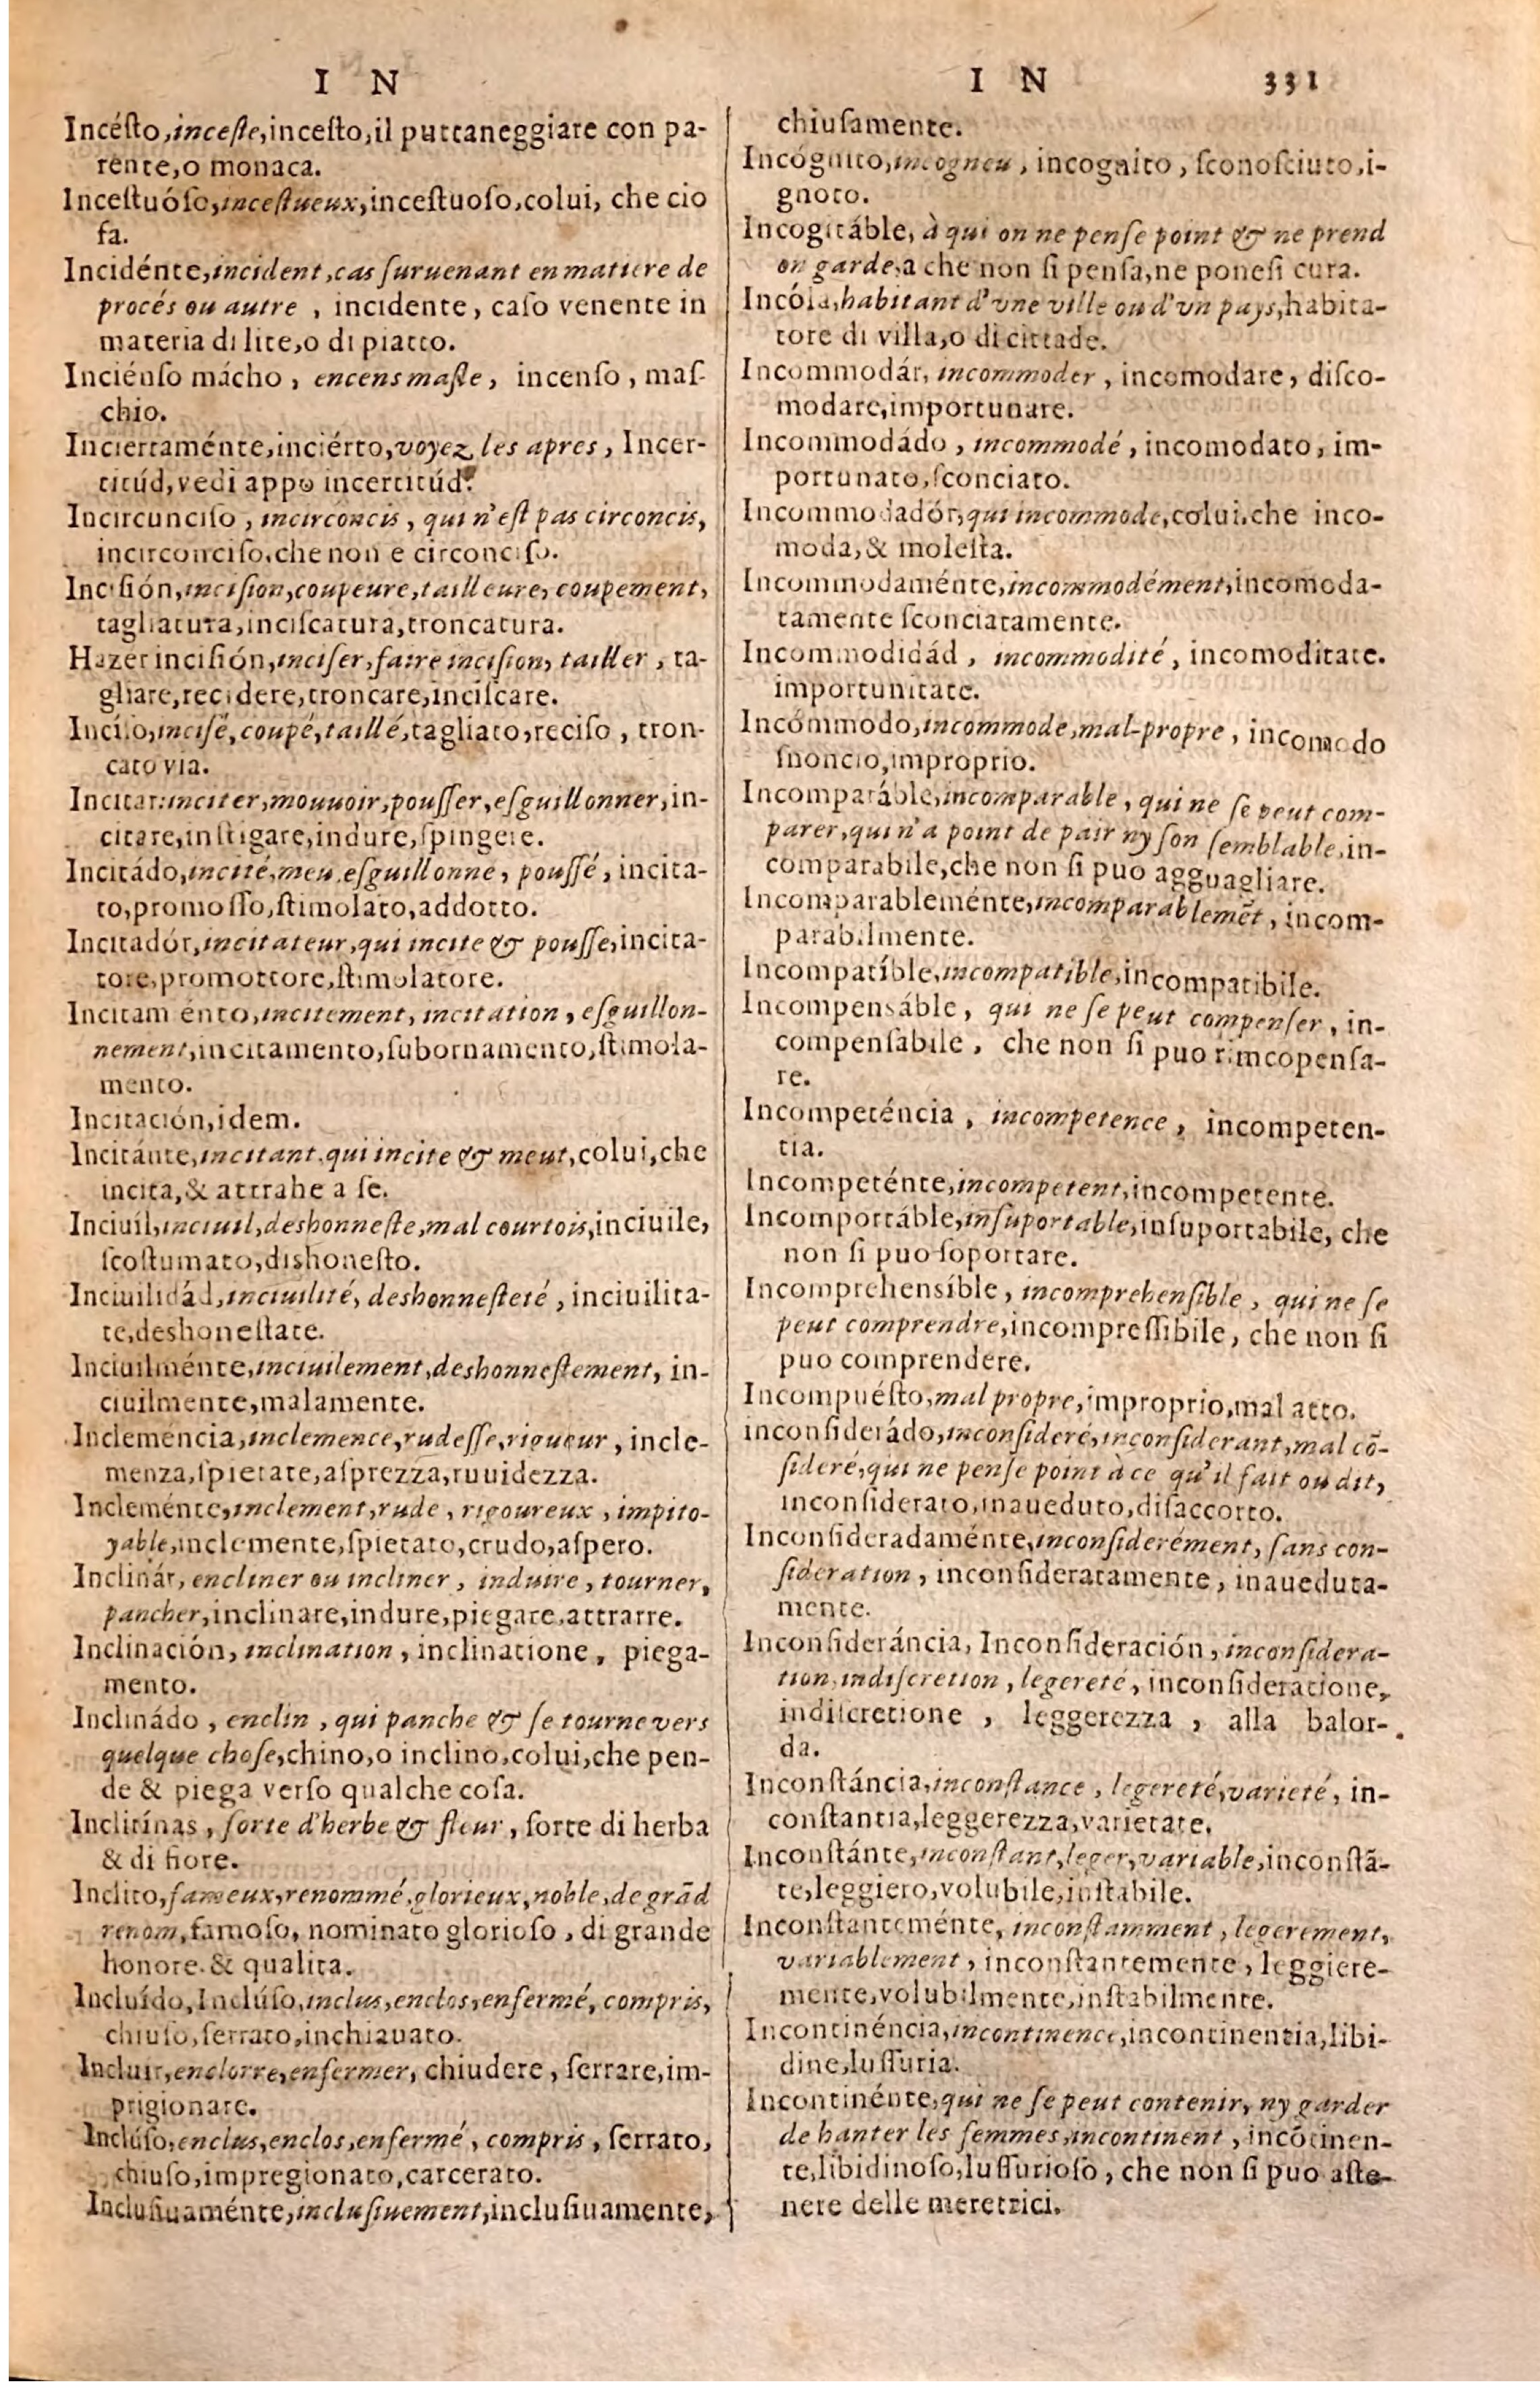 I N
Incésto,inceste,incesto,il puttaneggiare con pa-
rente,o monaca.
Incestuóso,incestueux,incestuoso,colui, che cio
fa.
Incidénte,incident,cas suruenant en matiere de
procés ou autre , incidente, caso venente in
materia di lite,o di piatto.
Inciénso mácho , encens masle, incenso, mas-
chio.
Inciertaménte,inciérto,voyez les apres, Incer-
titúd,vedi appo incertitúd.
Incircunciso , incirconcis, qui n'est pas circoncis,
incirconciso,che non e circonciso.
Incisión,incision,coupeure,tailleure,coupement,
tagliatura,inciscatura,troncatura.
Hazer incisión,inciser,faire incision, tailler, ta-
gliare,recidere,troncare,inciscare.
Incíso,incisé,coupé,taillé,tagliato,reciso, tron-
cato via.
Incitar:inciter,mouuoir,pousser,esguillonner,in-
citare,instigare,indure,spingere.
Incitádo,incité,meu,esguillonne, poussé, incita-
to,promosso,stimolato,addotto.
Incitadór,incitateur,qui incite & pousse,incita-
tore,promottore,stimolatore.
Incitam énto,incitement, incitation, esguillon-
nement,incitamento,subornamento,stimola-
mento.
Incitación,idem.
Incitánte,incitant,qui incite & meut,colui,che
incita,& attrahe a se.
Inciuíl,inciuil,deshonneste,mal courtois,inciuile,
scostumato,dishonesto.
Inciuilidád,inciuilité, deshonnesteté, inciuilita-
te,deshonestate.
Inciuilménte,inciuilement,deshonnestement, in-
ciuilmente,malamente.
Incleméncia,inclemence,rudesse,rigueur, incle-
menza,spietate,asprezza,ruuidezza.
Incleménte,inclement,rude, rigoureux, impito-
yable,inclemente,spietato,crudo,aspero.
Inclinár, encliner ou incliner, induire, tourner,
pancher,inclinare,indure,piegare,attrarre.
Inclinación, inclination, inclinatione, piega-
mento.
Inclinádo , enclin , qui panche & se tourne vers
quelque chose,chino,o inclino,colui,che pen-
de & piega verso qualche cosa.
Inclitínas , sorte d'herbe & fleur, sorte di herba
& di fiore.
Inclito,fameux,renommé,glorieux,noble,de grãd
renom,famoso, nominato glorioso, di grande
honore.& qualita.
Incluído,Inclúso,inclus,enclos,enfermé, compris,
chiuso,serrato,inchiauato.
Incluir,enclorre,enfermer, chiudere, serrare,im-
prigionare.
Inclúso,enclus,enclos,enfermé, compris, serrato,
chiuso,impregionato,carcerato.
Inclusiuaménte,inclusiuement,inclusiuamente,
I N 331
chiusamente.
Incógnito,incogneu, incognito, sconosciuto,i-
gnoto.
Incogitáble, à qui on ne pense point & ne prend
on garde,a che non si pensa,ne ponesi cura.
Incóla,habitant d'vne ville ou d'vn pays,habita-
tore di villa,o di cittade.
Incommodár, incommoder, incomodare, disco-
modare,importunare.
Incommodádo , incommodé, incomodato, im-
portunato,sconciato.
Incommodadór,qui incommode,colui,che inco-
moda,& molesta.
Incommodaménte,incommodément,incomoda-
tamente sconciatamente.
Incommodidád , incommodité, incomoditate.
importunitate.
Incómmodo,incommode,mal-propre, incomodo
snoncio,improprio.
Incomparáble,incomparable, qui ne se peut com-
parer,qui n'a point de pair ny son semblable,in-
comparabile,che non si puo agguagliare.
Incomparableménte,incomparablemẽt, incom-
parabilmente.
Incompatíble,incompatible,incompatibile.
Incompensáble, qui ne se peut compenser, in-
compensabile, che non si puo rimcopensa-
re.
Incompeténcia , incompetence, incompeten-
tia.
Incompeténte,incompetent,incompetente.
Incomportáble,insuportable,insuportabile, che
non si puo soportare.
Incomprehensíble, incomprehensible, qui ne se
peut comprendre,incompressibile, che non si
puo comprendere.
Incompuésto,mal propre,improprio,mal atto.
inconsiderádo,inconsideré,inconsiderant,mal cõ-
sideré,qui ne pense point à ce qu'il fait ou dit,
inconsiderato,inaueduto,disaccorto.
Inconsideradaménte,inconsiderément, sans con-
sideration, inconsideratamente, inaueduta-
mente.
Inconsideráncia, Inconsideración, inconsidera-
tion,indiscretion, legereté, inconsideratione,
indiscretione , leggerezza, alla balor-
da.
Inconstáncia,inconstance, legereté,varieté, in-
constantia,leggerezza,varietate.
Inconstánte,inconstant,leger,variable,inconstã-
te,leggiero,volubile,instabile.
Inconstanteménte, inconstamment, legerement,
variablement, inconstantemente, leggiere-
mente,volubilmente,instabilmente.
Incontinéncia,incontinence,incontinentia,libi-
dine,lussuria.
Incontinénte,qui ne se peut contenir, ny garder
de hanter les femmes,incontinent, incõtinen-
te,libidinoso,lussurioso, che non si puo aste-
nere delle meretrici.